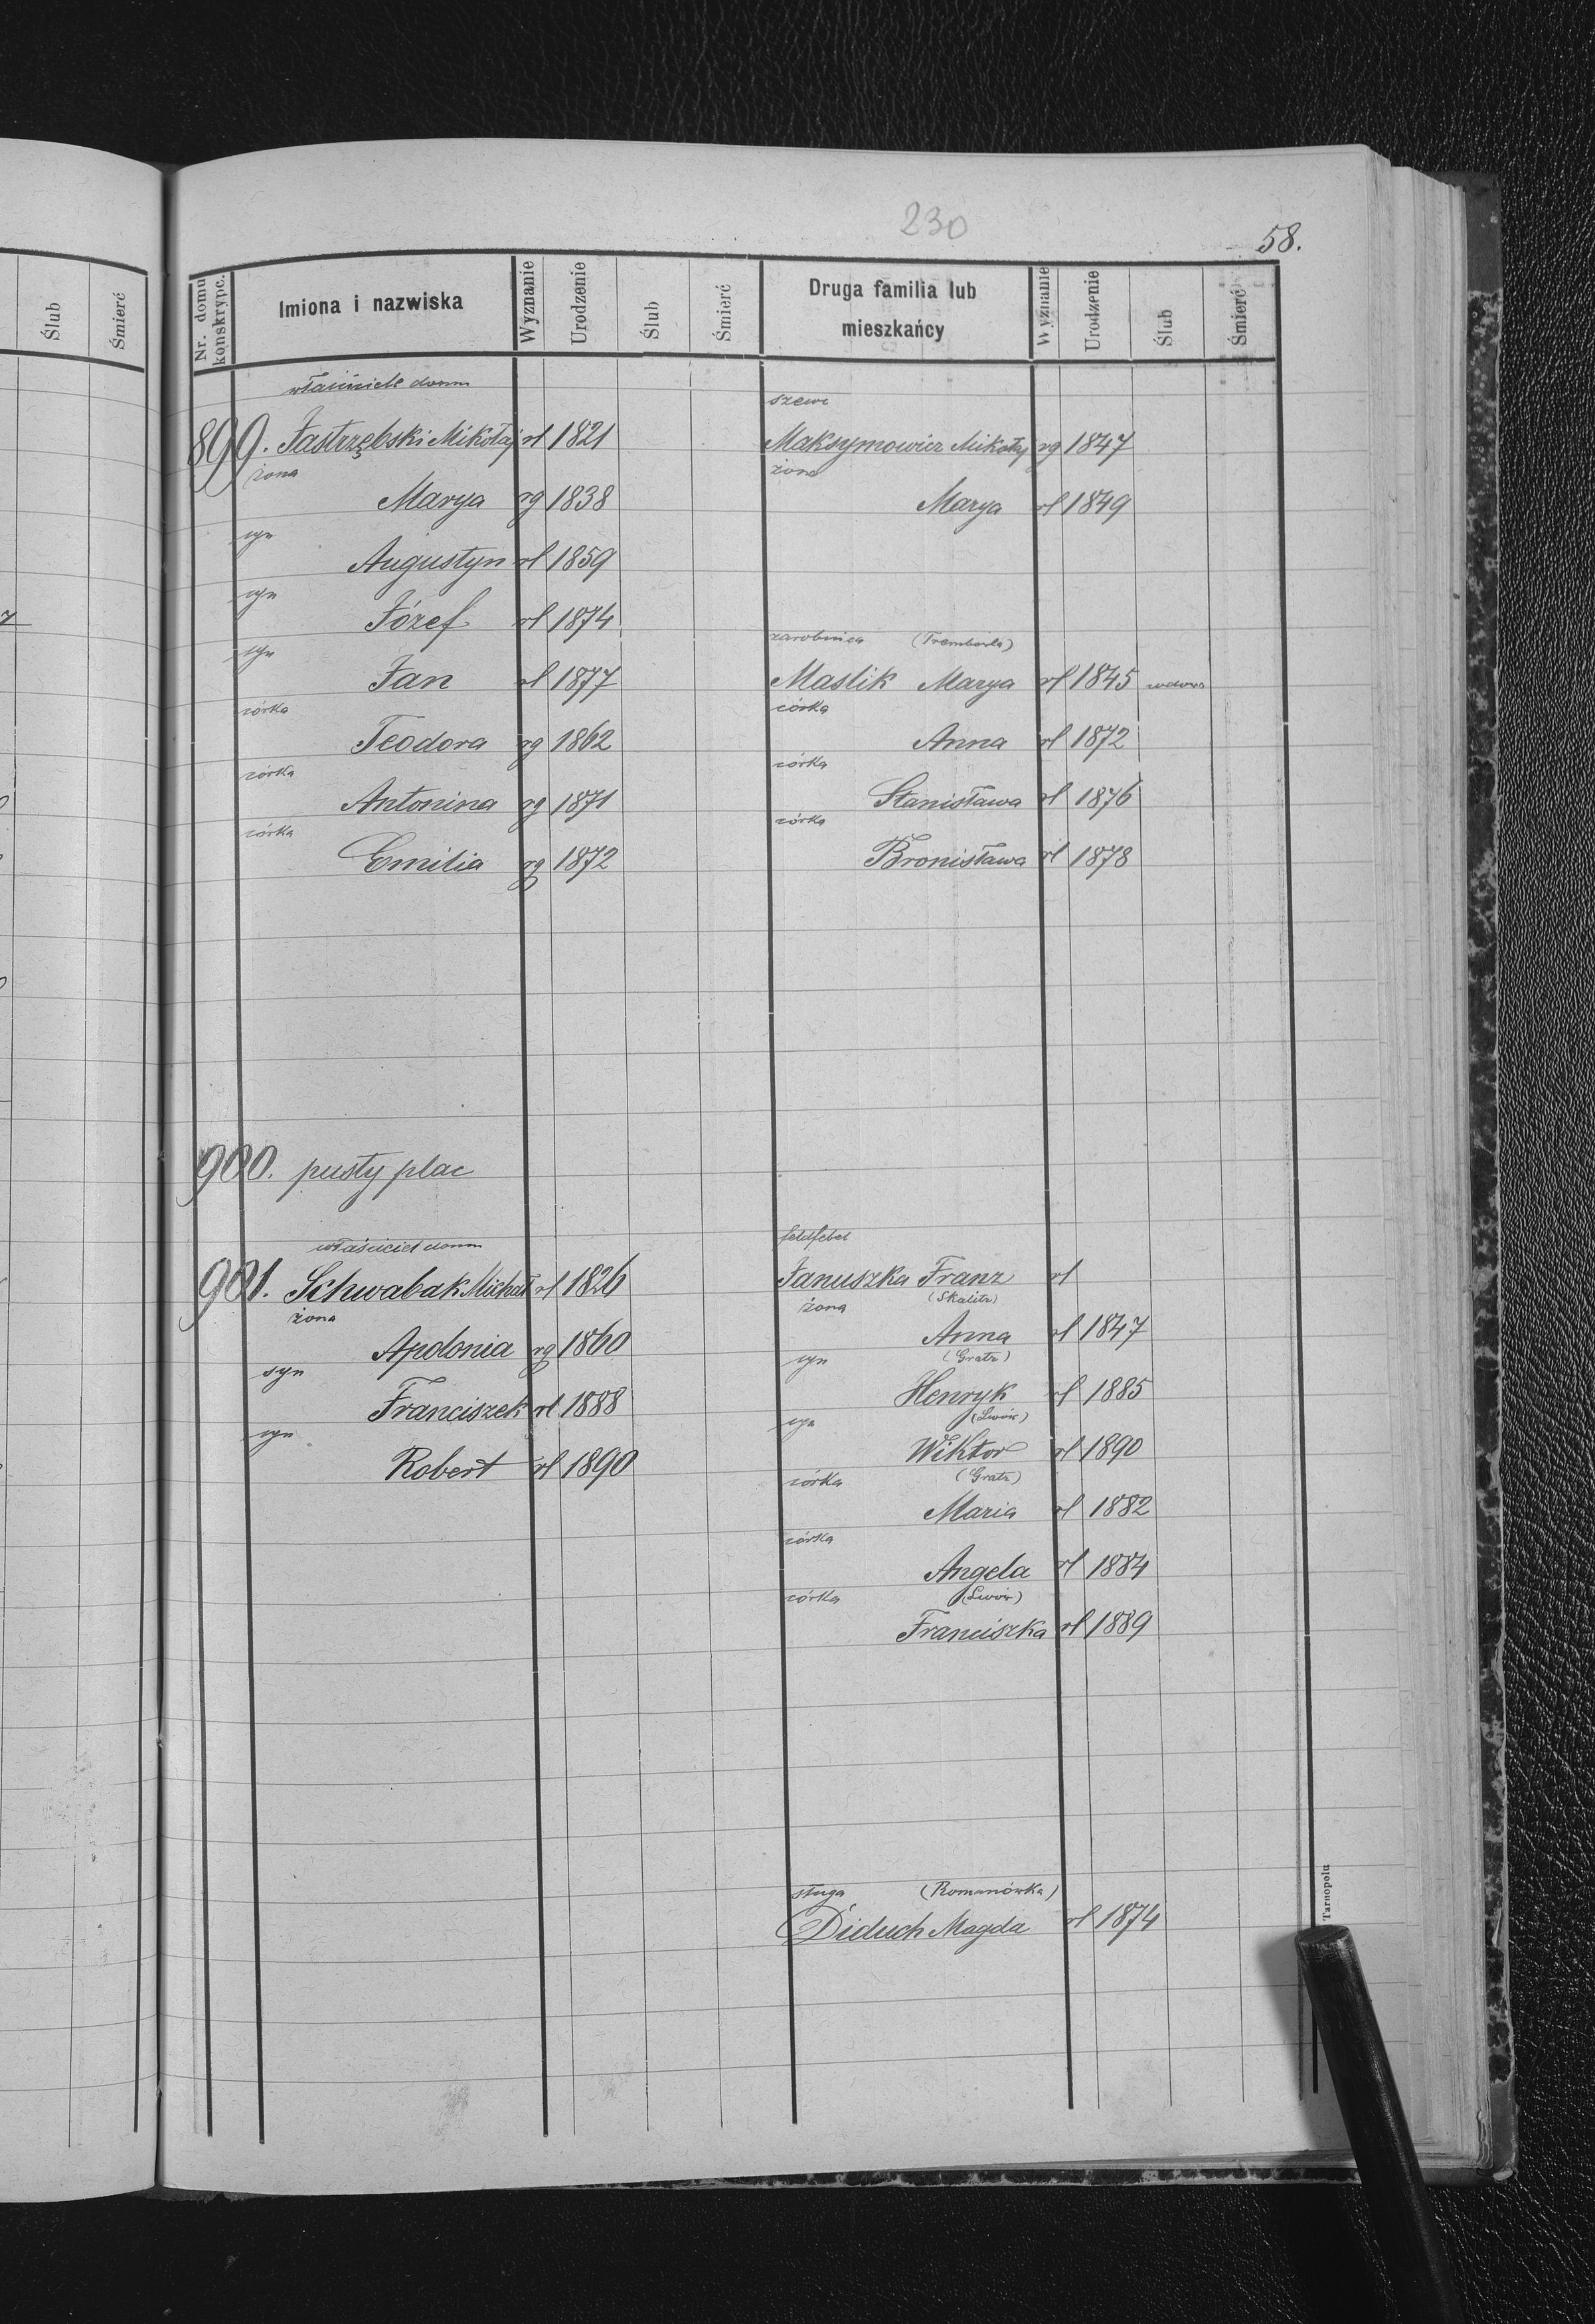 230
58.
Ślub Śmierć
Nr. domu konskrypc. Imiona i nazwiska Wyznanie Urodzenie Ślub Śmierć Druga familia lub mieszkańcy Wyznanie Urodzenie Ślub Śmierć
właściciel domu
899. Jastrzębski Mikołaj rl 1821
żona
Marya rg 1838
syn
Augustyn rl 1859
syn
Józef rl 1874
syn
Jan rl 1877
córka
Teodora rg 1862
córka
Antonina rg 1871
córka
Emilia rg 1872
szewc
Maksymowicz Mikołaj rg 1847
żona
Marya rl 1849
zarobnica (Trembowla)
Maslik Marya rl 1845 wdowa
córka
Anna rl 1872
córka
Stanisława rl 1876
córka
Bronisława rl 1878
900. pusty plac
właściciel domu
901. Schwabak Michał rl 1826
żona
Apolonia rg 1860
syn
Franciszek rl 1888
syn
Robert rl 1890
feldfebel
Januszka Franz rl
żona (Skalitz)
Anna rl 1847
syn (Gratz)
Henryk rl 1885
syn (Lwów)
Wiktor rl 1890
córka (Gratz)
Maria rl 1882
córka
Angela rl 1884
córka (Lwów)
Franciszka rl 1889
sługa (Romanówka)
Diduch Magda rl 1874
Tarnopolu